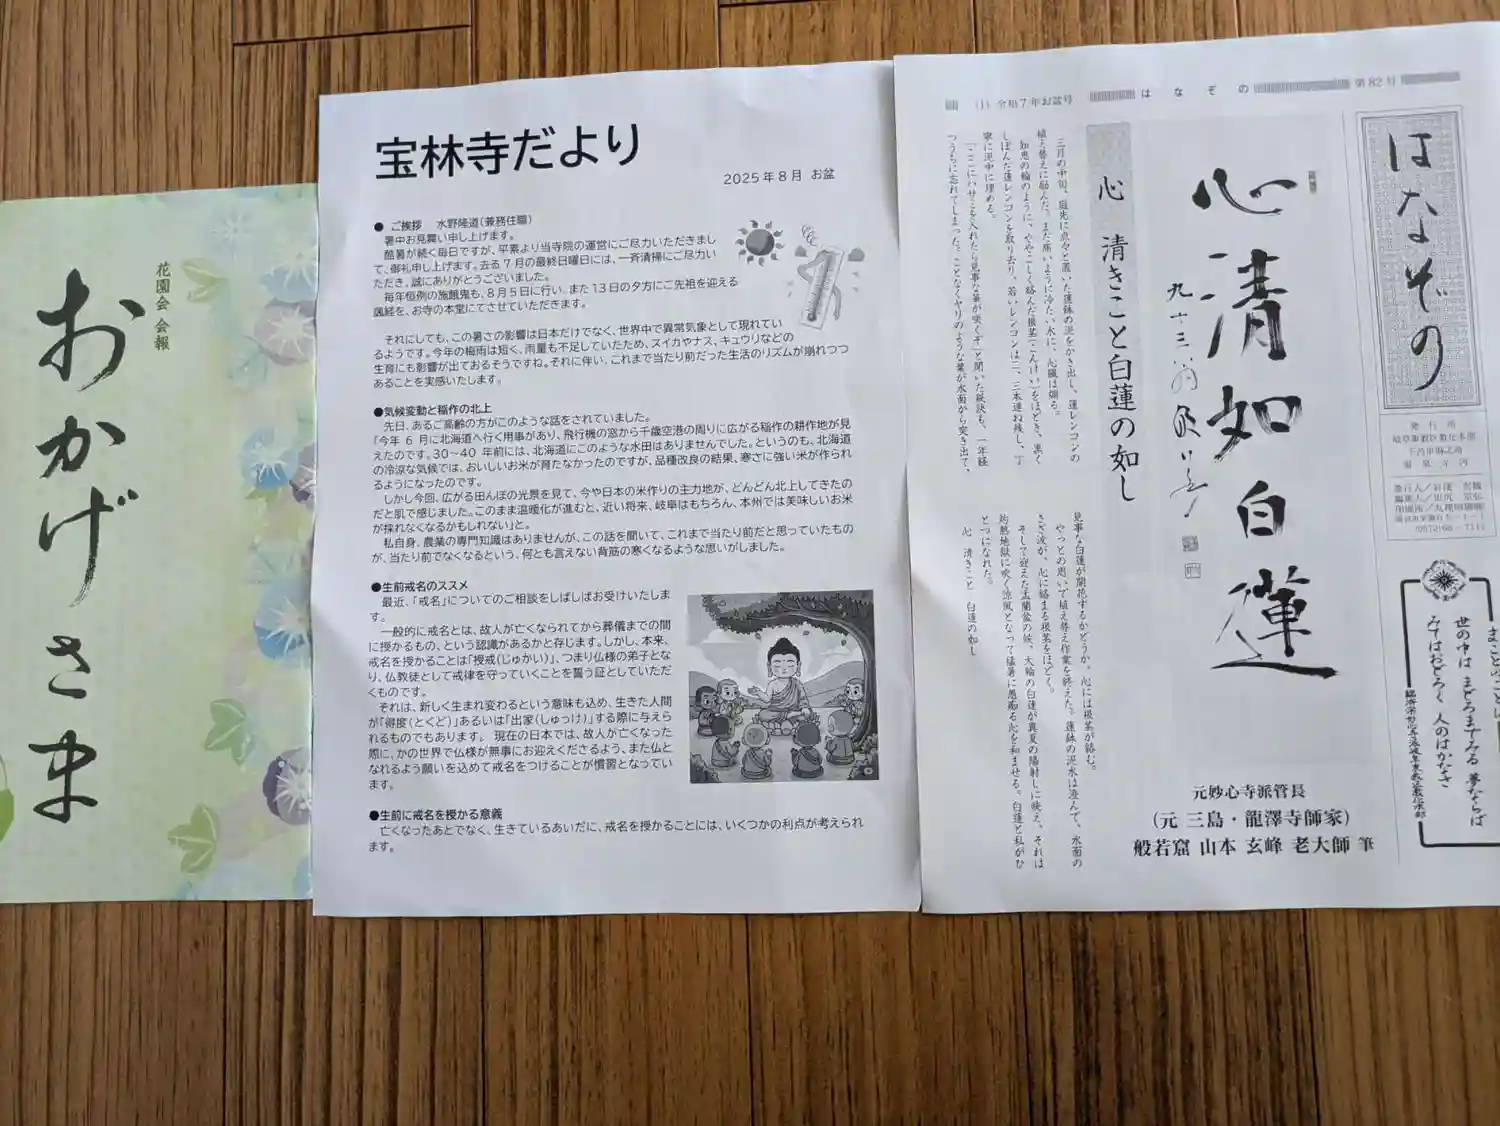 花園会 会報
おかげさま
宝林寺だより
2025年8月 お盆
● ご挨拶 水野隆道(兼務住職)
暑中お見舞い申し上げます。
酷暑が続く毎日ですが、平素より当寺院の運営にご尽力いただきまし
て、御礼申し上げます。去る7月の最終日曜日には、一斉清掃にご尽力い
ただき、誠にありがとうございました。
毎年恒例の施餓鬼も、8月5日に行い、また13日の夕方にご先祖を迎える
諷経を、お寺の本堂にてさせていただきます。
それにしても、この暑さの影響は日本だけでなく、世界中で異常気象として現れてい
るようです。今年の梅雨は短く、雨量も不足していたため、スイカやナス、キュウリなどの
生育にも影響が出ておるそうですね。それに伴い、これまで当たり前だった生活のリズムが崩れつつ
あることを実感いたします。
●気候変動と稲作の北上
先日、あるご高齢の方がこのような話をされていました。
「今年 6 月に北海道へ行く用事があり、飛行機の窓から千歳空港の周りに広がる稲作の耕作地が見
えたのです。30~40 年前には、北海道にこのような水田はありませんでした。というのも、北海道
の冷涼な気候では、おいしいお米が育たなかったのですが、品種改良の結果、寒さに強い米が作られ
るようになったのです。
しかし今回、広がる田んぼの光景を見て、今や日本の米作りの主力地が、どんどん北上してきたの
だと肌で感じました。このまま温暖化が進むと、近い将来、岐阜はもちろん、本州では美味しいお米
が採れなくなるかもしれない」と。
私自身、農業の専門知識はありませんが、この話を聞いて、これまで当たり前だと思っていたもの
が、当たり前でなくなるという、何とも言えない背筋の寒くなるような思いがしました。
●生前戒名のススメ
最近、「戒名」についてのご相談をしばしばお受けいたしま
す。
一般的に戒名とは、故人が亡くなられてから葬儀までの間
に授かるもの、という認識があるかと存じます。しかし、本来、
戒名を授かることは「授戒(じゅかい)」、つまり仏様の弟子とな
り、仏教徒として戒律を守っていくことを誓う証としていただ
くものです。
それは、新しく生まれ変わるという意味も込め、生きた人間
が「得度(とくど)」あるいは「出家(しゅっけ)」する際に与えら
れるものでもあります。 現在の日本では、故人が亡くなった
際に、かの世界で仏様が無事にお迎えくださるよう、また仏と
なれるよう願いを込めて戒名をつけることが慣習となってい
ます。
●生前に戒名を授かる意義
亡くなったあとでなく、生きているあいだに、戒名を授かることには、いくつかの利点が考えられ
ます。
(1) 令和7年お盆号
はなぞの
第82号
はなぞの
発行所
心清如白蓮
九十三翁
元妙心寺派管長
(元 三島・龍澤寺師家)
般若窟 山本 玄峰 老大師 筆
心 清きこと白蓮の如し
三月の中旬、庭先に点々と置いた蓮鉢の泥をかき出し、蓮レンコンの
植え替えに励んだ。まだ痛いように冷たい水に、心臓は縮る。
知恵の輪のように、ややこしく絡んだ根茎(こんけい)をほどき、黒く
しぼんだ蓮レンコンを取り去り、若いレンコンは二、三本連ね残し、丁
寧に泥中に埋める。
「ここにハサミを入れたら見事な華が咲くぞ」と聞いた秘訣も、一年経
つうちに忘れてしまった。ことなくヤリのような葉が水面から突き出て、
見事な白蓮が開花するかどうか、心には根茎が絡む。
やっとの思いで植え替え作業を終えた。蓮鉢の泥水は澄んで、水面の
さざ波が、心に絡まる根茎をほどく。
そして迎えた盂蘭盆の候、大輪の白蓮が真夏の陽射しに映え、それは
灼熱地獄に吹く涼風となって猛暑に愚痴る心を和ませる。白蓮と私がひ
とつになれた。
心 清きこと 白蓮の如し
世の中は まどろまでみる 夢ならば
みてはおどろく 人のはかなさ